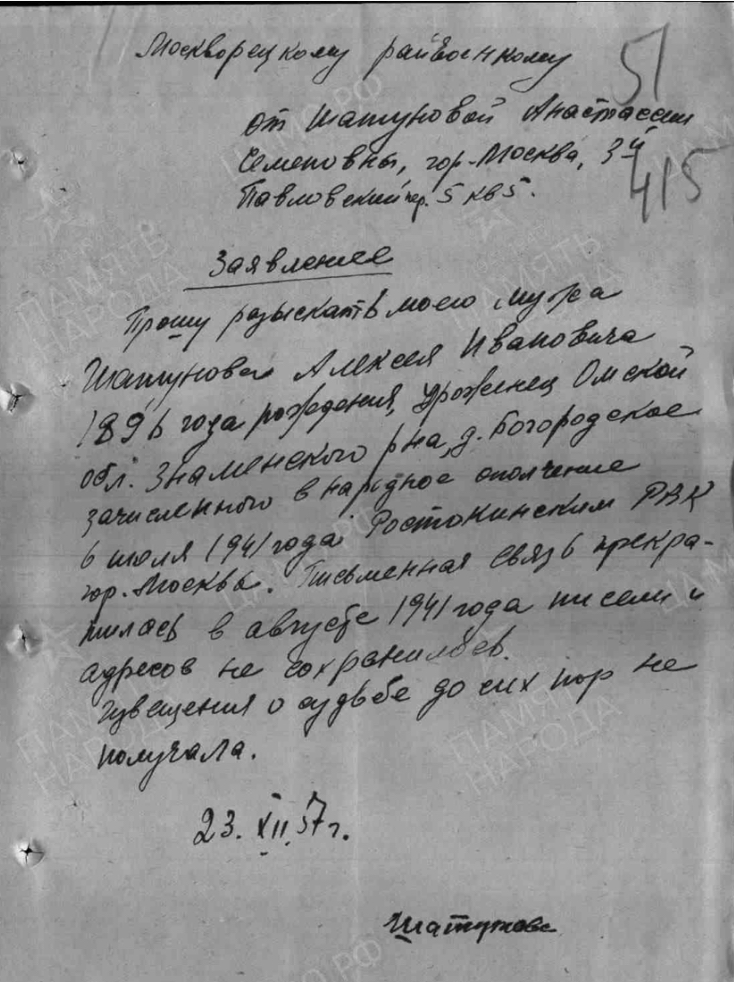 51
Москворецкому райвоенкому
от Шатуновой Анастасии
Семеновны, гор. Москва, 3й
415
Павловский пер. 5 кв 5.
Заявление
Прошу розыскать моего мужа
Шатунова Алексея Ивановича
1896 года рождения, уроженец Омской
обл. Знаменского р на, д. Богородское
зачисленного в народное ополчение
6 июля 1941 года Ростокинским РВК
гор. Москвы. Письменная связь прекра-
тилась в августе 1941 года писем и
адресов не сохранилось.
Извещения о судьбе до сих пор не
получала.
23. XII 57 г.
Шатунова
ПАМЯТЬ
НАРОДА
ПАМЯТЬ
НАРОДА
ПАМЯТЬ
НАРОДА
ПАМЯТЬ
НАРОДА